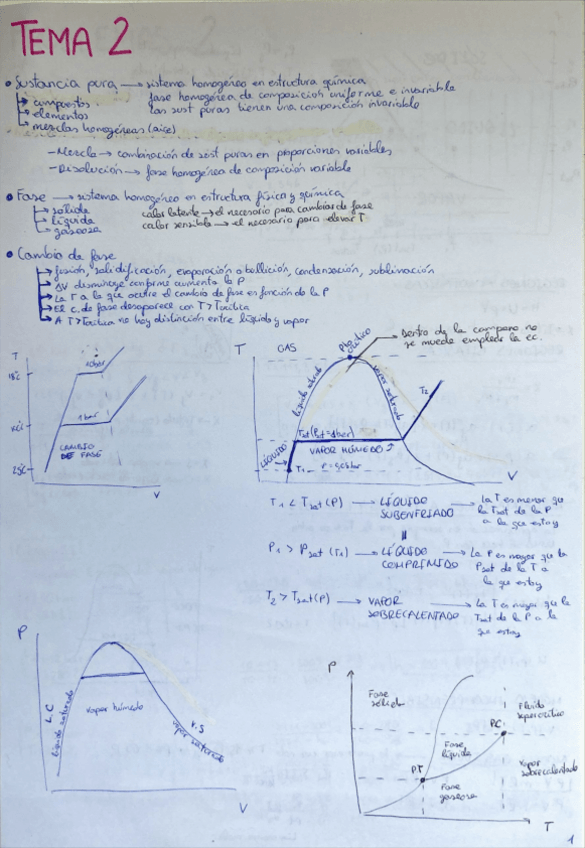 TEMA 2
• Sustancia pura → sistema homogéneo en estructura química
→ compuestos fase homogénea de composición uniforme e invariable
→ elementos las sust puras tienen una composición invariable
→ mezclas homogéneas (aire)
- Mezcla → combinación de sust puras en proporciones variables
- Disolución → fase homogénea de composición variable
• Fase → sistema homogéneo en estructura física y química
→ sólida calor latente → el necesario para cambiar de fase
→ líquida calor sensible → el necesario para elevar T
→ gaseosa
• Cambio de fase
→ fusión, solidificación, evaporación o ebullición, condensación, sublimación
→ ΔV disminuye conforme aumenta la P
→ La T a la que ocurre el cambio de fase es función de la P
→ El c. de fase desaparece con T > Tcrítica
→ A T > Tcrítica no hay distinción entre líquido y vapor
T
1 bar
CAMBIO
DE FASE
25ºC
V
T
GAS
Pto crítico
Dentro de la campana no
se puede emplear la ec.
líquido saturado
vapor saturado
T2
Tsat (Psat = 1 bar)
LÍQUIDO
VAPOR HÚMEDO
T1
V
T1 < Tsat (P) → LÍQUIDO SUBENFRIADO → La T es menor que la Tsat de la P a la que estoy
P1 > Psat (T1) → LÍQUIDO COMPRIMIDO → La P es mayor que la Psat de la T a la que estoy
T2 > Tsat (P) → VAPOR SOBRECALENTADO → La T es mayor que la Tsat de la P a la que estoy
P
L.C
líquido saturado
vapor húmedo
V.S
vapor saturado
V
P
Fase
sólida
Fluido
supercrítico
PC
Fase
líquida
PT
Vapor
sobrecalentado
Fase
gaseosa
T
1